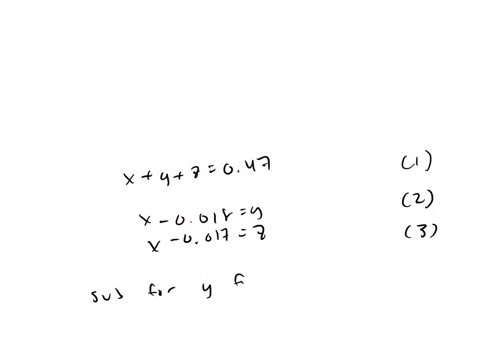 x + y + z = 0.47 (1)
x - 0.018 = y (2)
x - 0.017 = z (3)
sub for y f